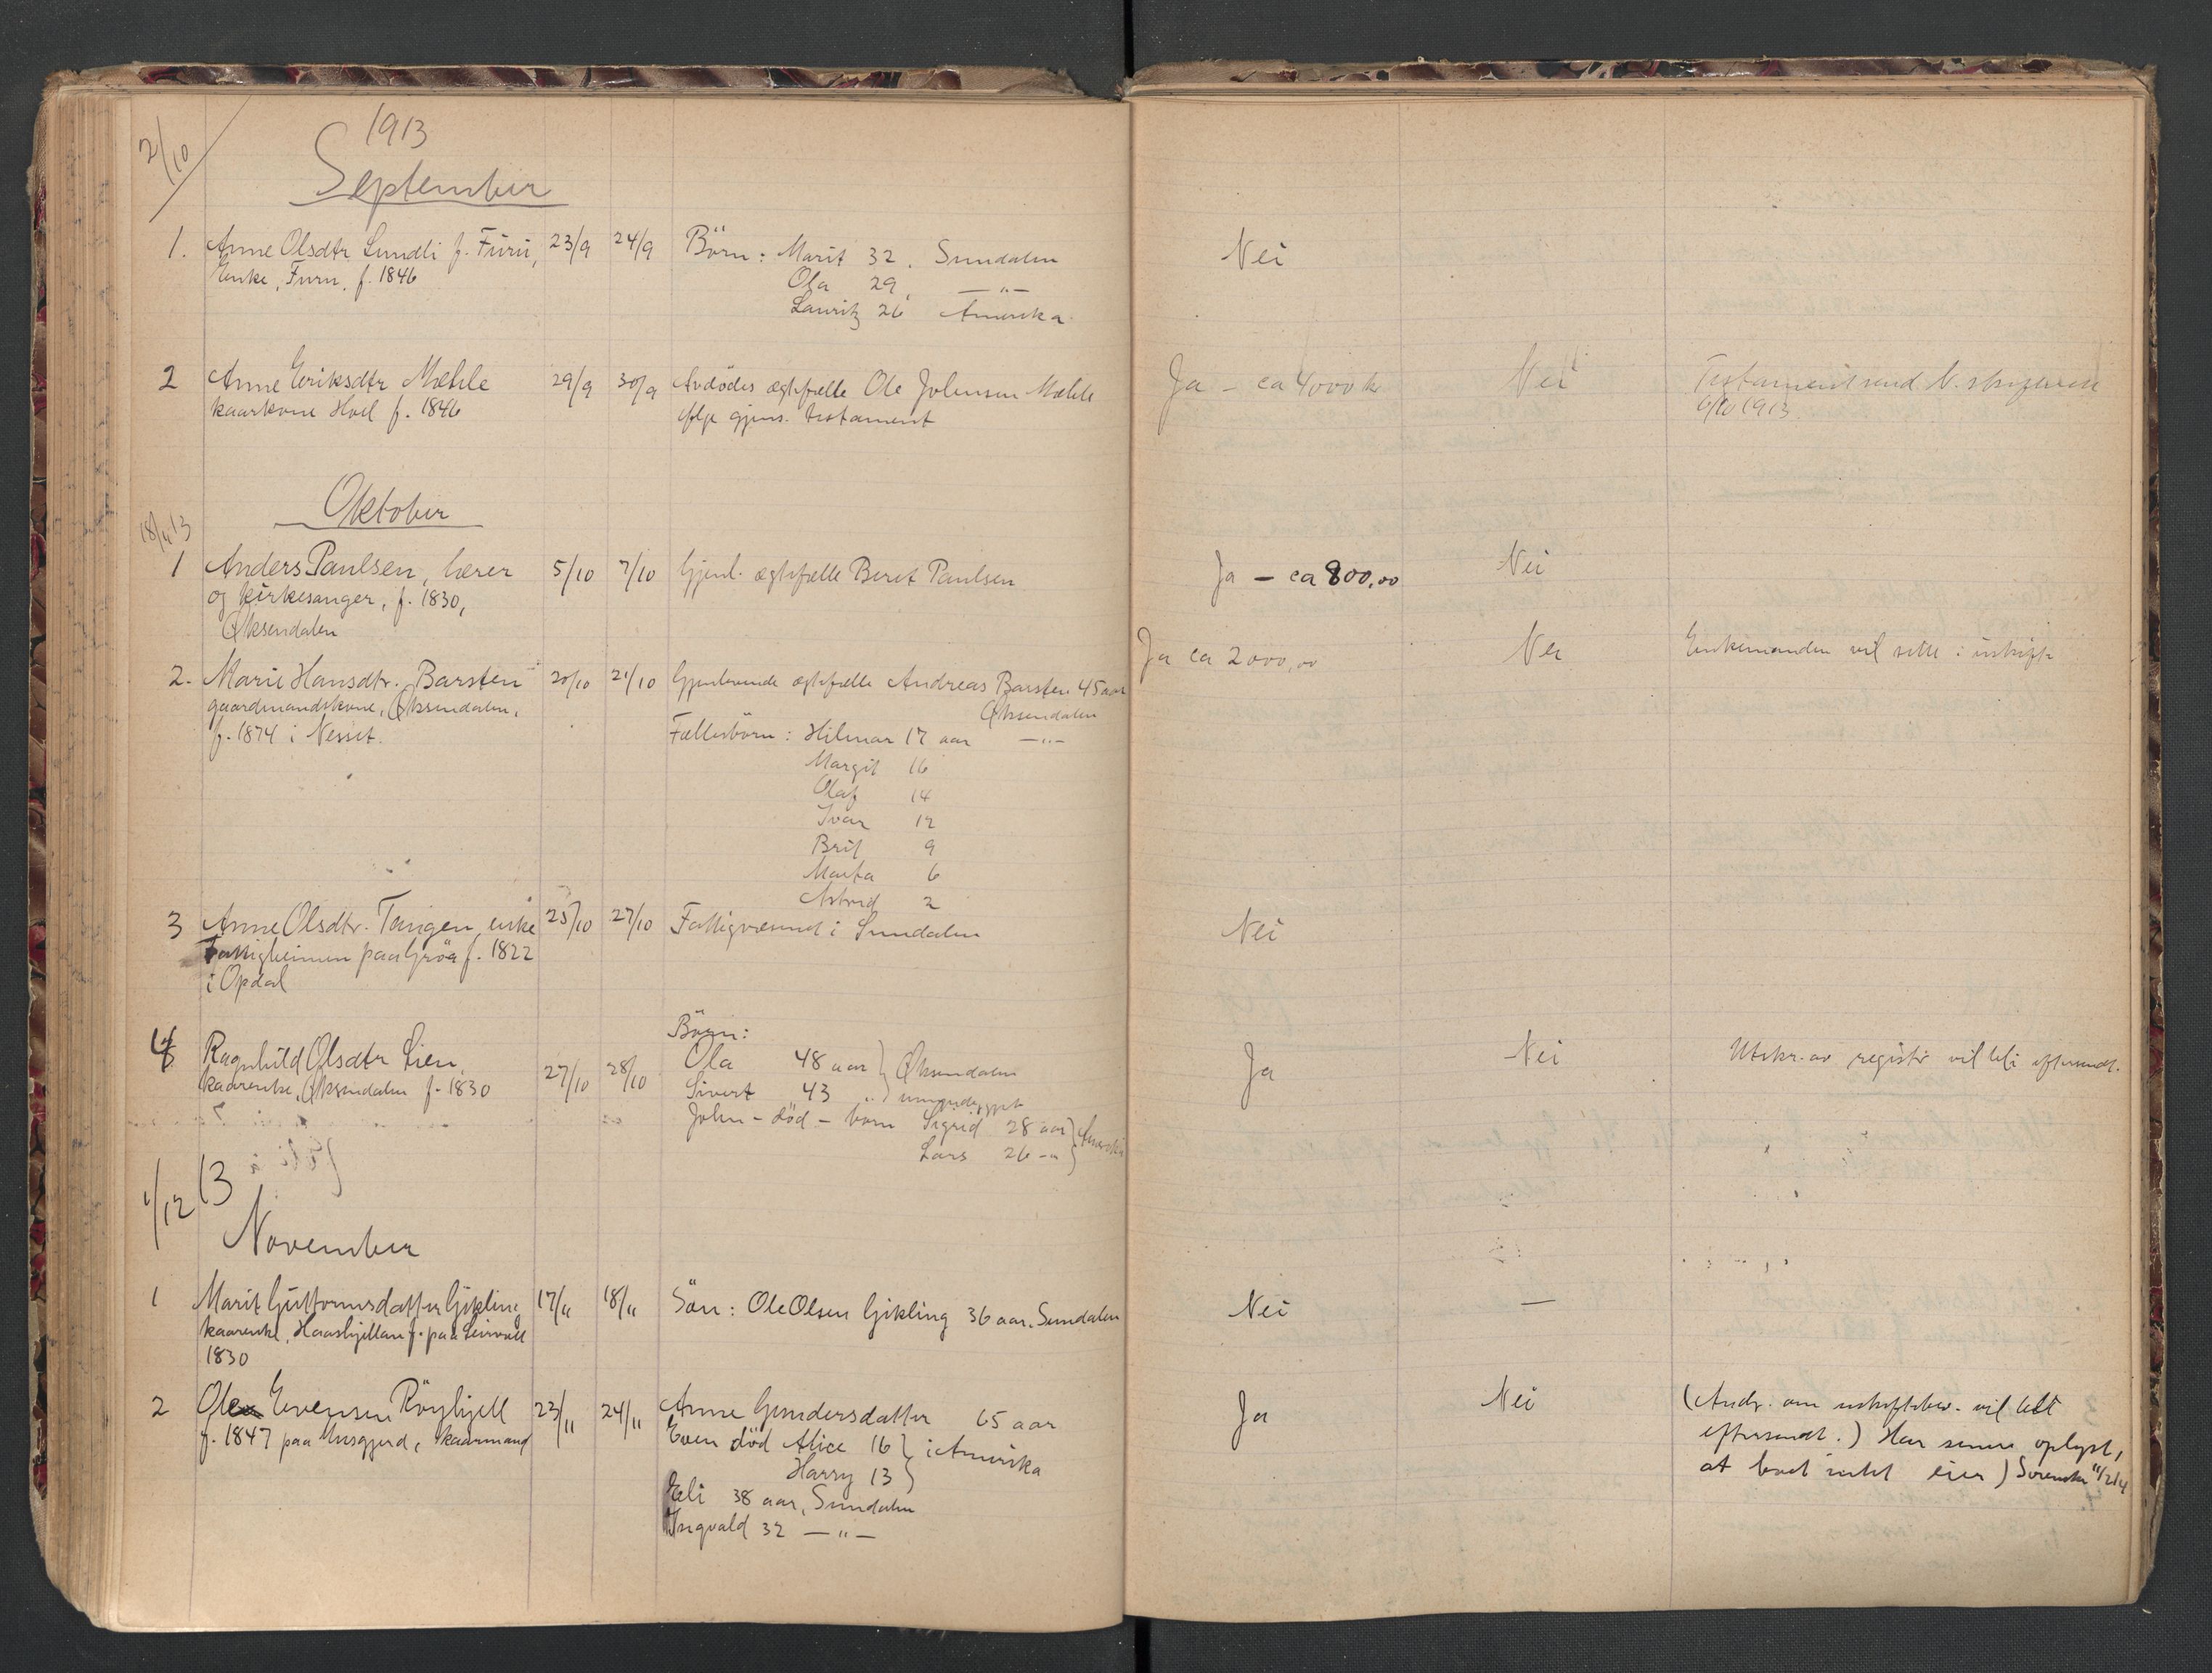 2/10
1913
September
1. Anne Olsdtr Lundli f. Furu, 23/9 24/9 Börn: Marit 32, Sundalen Nei
Enke, Furu, f. 1846
Ola 29, —„—
Lauritz 26 Amerika
2 Anne Eriksdtr Mæhle 29/9 30/9 Avdödes ægtefælle Ole Johnsen Mæhle Ja - ca 4000 kr Nei Testament send.
kaarkone Hoel f. 1846 ifølge gjens. testament 6/10 1913.
Oktober
18/11 13
1 Anders Paulsen, lærer 5/10 7/10 Gjenl. ægtefælle Beret Paulsen Ja - ca 800,00 Nei
og kirkesanger, f. 1830,
Øksendalen
2. Marie Hansdtr. Barsten 20/10 21/10 Gjenlevende ægtefælle Andreas Barsten 45 aar Ja ca 2000,00 Nei Enkemanden vil sitte i uskifte
gaardmandskone, Øksendalen, Øksendalen
f. 1874 i Nesset. Fællesbörn: Hilmar 17 aar —„—
Margit 16
Olaf 14
Ivar 12
Brit 9
Marta 6
Astrid 2
3 Anne Olsdtr. Tangen, enke 25/10 27/10 Fattigvæsenet i Sundalen Nei
Fattigheimen paa Grøa f. 1822
i Opdal
Börn:
4 Ragnhild Olsdtr Lien, 27/10 28/10 Ola 48 aar } Øksendalen Ja Nei Utskr. av registr vil bli eftersendt.
kaarenke, Øksendalen f. 1830 Sivert 43 „ }
John - död - barn Sigrid 28 aar } Amerika
Lars 26 -„ }
1/12 13
November
1 Marit Guttormsdatter Gjikling 17/11 18/11 Sön: Ole Olsen Gjikling 36 aar, Sundalen Nei —
kaarenke, Haaskjellan f. paa Leirvall
1830
2 Ole Evensen Röymjell 23/11 24/11 Anne Gundersdatter 65 aar Ja Nei (Andr. om uskiftebev. vil bli
f. 1847 paa Husgjerd, kaarmand Even död Alice 16 } i Amerika eftersendt.) Har senere oplyst,
Harry 13 } at boet intet eier)
Eli 38 aar, Sundalen
Ingvald 32 —„—